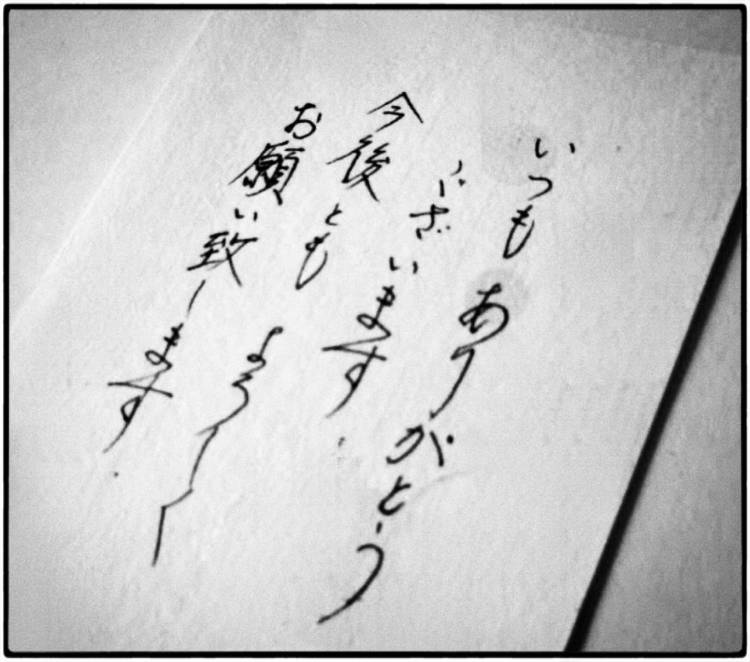 いつもありがとう
ございます.
今後ともよろしく
お願い致します.